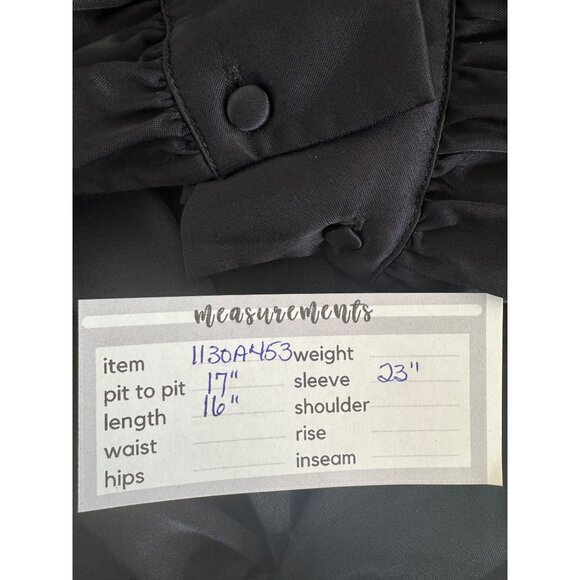 measurements
item 1130A453 weight
pit to pit 17" sleeve 23"
length 16" shoulder
waist rise
hips inseam